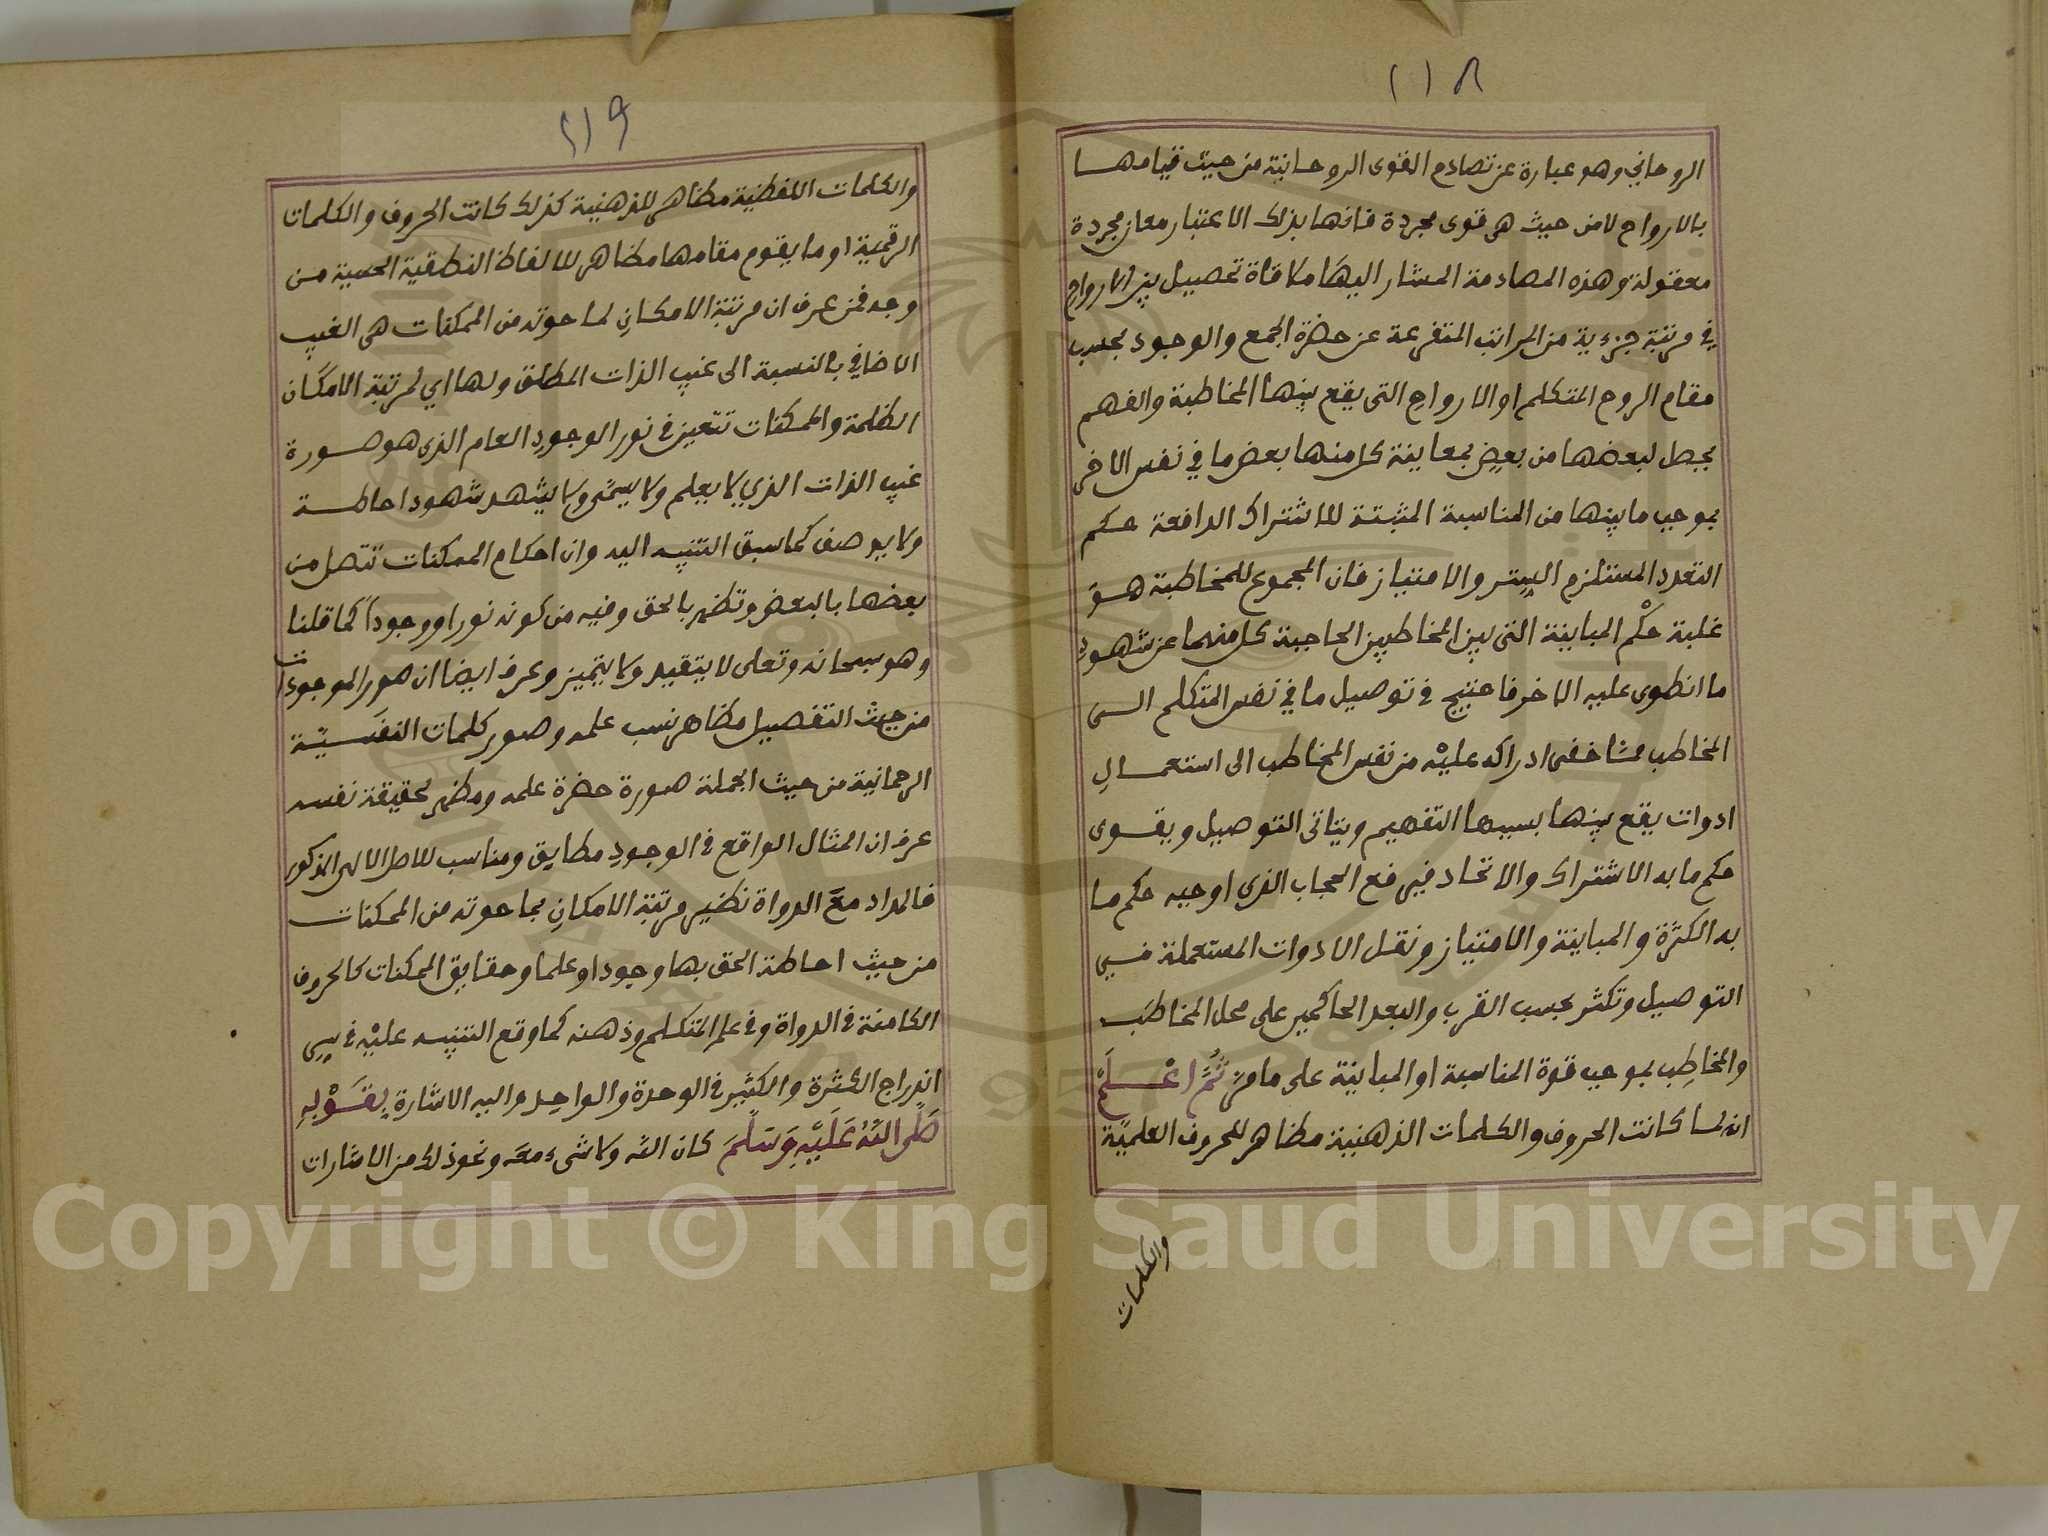 ١١٨
الروحاني وهو عبارة عن تصادم القوى الروحانية من حيث قيامها
بالارواح لا من حيث هي قوى مجردة فانها بذلك الاعتبار معان مجردة
معقولة وهذه المصادمة المشار اليها ملاقاة تحصيل بين الارواح
في مرتبة جزءية من المراتب المتفرعة عن حضرة الجمع والوجود بحسب
مقام الروح المتكلم او الارواح التى يقع بينها المخاطبة والفهم
يحصل لبعضها من بعض بمعاينة كل منها بعض ما في نفس الاخر
بموجب ما بينها من المناسبة المثبتة للاشتراك الدافعة حكم
التعدد المستلزم الستر والامتياز فان المجموع للمخاطبة هو
غلبة حكْم المباينة التى بين المخاطبين الحاجبة كل منهما عن شهود
ما انطوى عليه الاخر فاحتيج في توصيل ما في نفس المتكلم الى
المخاطب مما خفى ادراكه عليْه من نفس المخاطب الى استعمالِ
ادوات يقع بينها بسببها التفهيم ويتاتى التوصيل ويقوى
حكم ما به الاشتراك والاتحاد فيرفع الحجاب الذى اوجبه حكم ما
به الكثرة والمباينة والامتياز وتقل الادوات المستعملة في
التوصيل وتكثر بحسب القرب والبعد الحاكمين على محل المخاطَب
والمخاطِب بموجب قوة المناسبة او المباينة على ما مرّ ثُمَّ اعْلَمْ
انه لما كانت الحروف والكلمات الذهنية مظاهر للحروف العلميّة
والكلمات
١١٩
والكلمات اللفظية مظاهر للذهنية كذلك كانت الحروف والكلمات
الرقمية او ما يقوم مقامها مظاهر للالفاظ النطقية الحسية من
وجه فمن عرف ان مرتبة الامكانِ لما حوته من الممكنات هى الغيب
الاضافي بالنسبة الى غيب الذات المطلق ولها اي لمرتبة الامكان
الظلمة والممكنات تتعين في نور الوجودِ العام الذى هو صورة
غيب الذات الذي لا يعلم ولا يسمّى ولا يشهد شهود احاطة
ولا يوصف كما سبق التنبيه اليه وان احكام الممكنات تتصل من
بعضها بالبعض وتظهر بالحق وفيه من كونه نورا ووجوداً كما قلنا
وهو سبحانه وتعلى لا يتقيد ولا يتميز وعرف ايضا ان صور الموجودات
من حيث التفصيل مظاهر نسب علمه وصور كلمات النفَسيّة
الرحمانية من حيث الجملة صورة حضرة علمه ومظهر لحقيقة نفسه
عرف ان المثال الواقع في الوجودِ مطابق ومناسب للاصل الالهى المذكور
فالمداد معَ الدواة نظير مرتبة الامكانِ بما حوته من الممكنات
من حيث احاطة الحق بها وجودا وعلما وحقايق الممكنات كالحروف
الكامنة في الدواة وفي علم المتكلم وذهنه كما وقع التنبيه عليْه في سرِ
اندراج الكثرة والكثير في الوحدة والواحد واليه الاشارة بِقَوْلِهِ
صَلَّى اللَّهُ عَلَيْهِ وَسَلَّمَ كان اللّه ولا شىء معه ونحو ذلك من الاشارات
Copyright © King Saud University